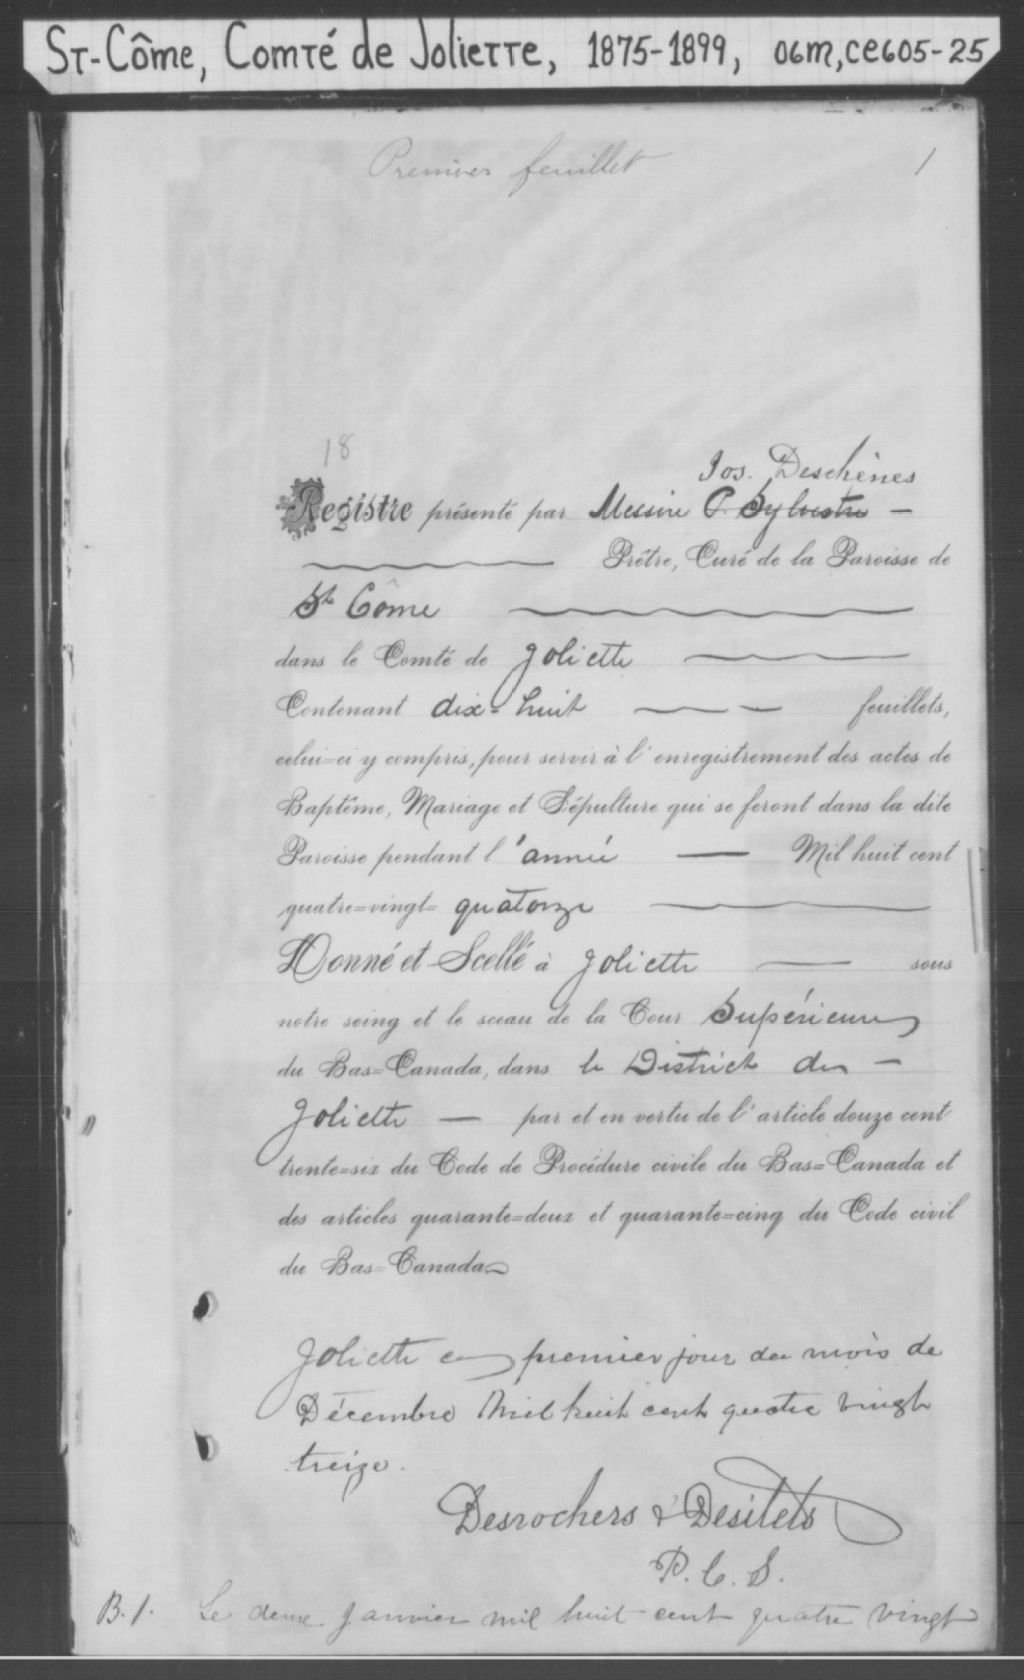 St-Côme, Comté de Joliette, 1875-1899, 06m,ce605-25
Premier feuillet 1
18
Jos. Deschênes
Registre présenté par Messire P. Sylvestre
Prêtre, Curé de la Paroisse de
St Côme
dans le Comté de Joliette
Contenant dix-huit feuillets,
celui-ci y compris, pour servir à l'enregistrement des actes de
Baptême, Mariage et Sépulture qui se feront dans la dite
Paroisse pendant l'année Mil huit cent
quatre-vingt-quatorze
Donné et Scellé à Joliette sous
notre seing et le sceau de la Cour Supérieure
du Bas-Canada, dans le District de
Joliette par et en vertu de l'article douze cent
trente-six du Code de Procédure civile du Bas-Canada et
des articles quarante-deux et quarante-cinq du Code civil
du Bas-Canada
Joliette ce premier jour du mois de
Décembre Mil huit cent quatre vingt
treize.
Desrochers & Desilets
P. C. S.
B. 1. Le deux Janvier mil huit cent quatre vingt